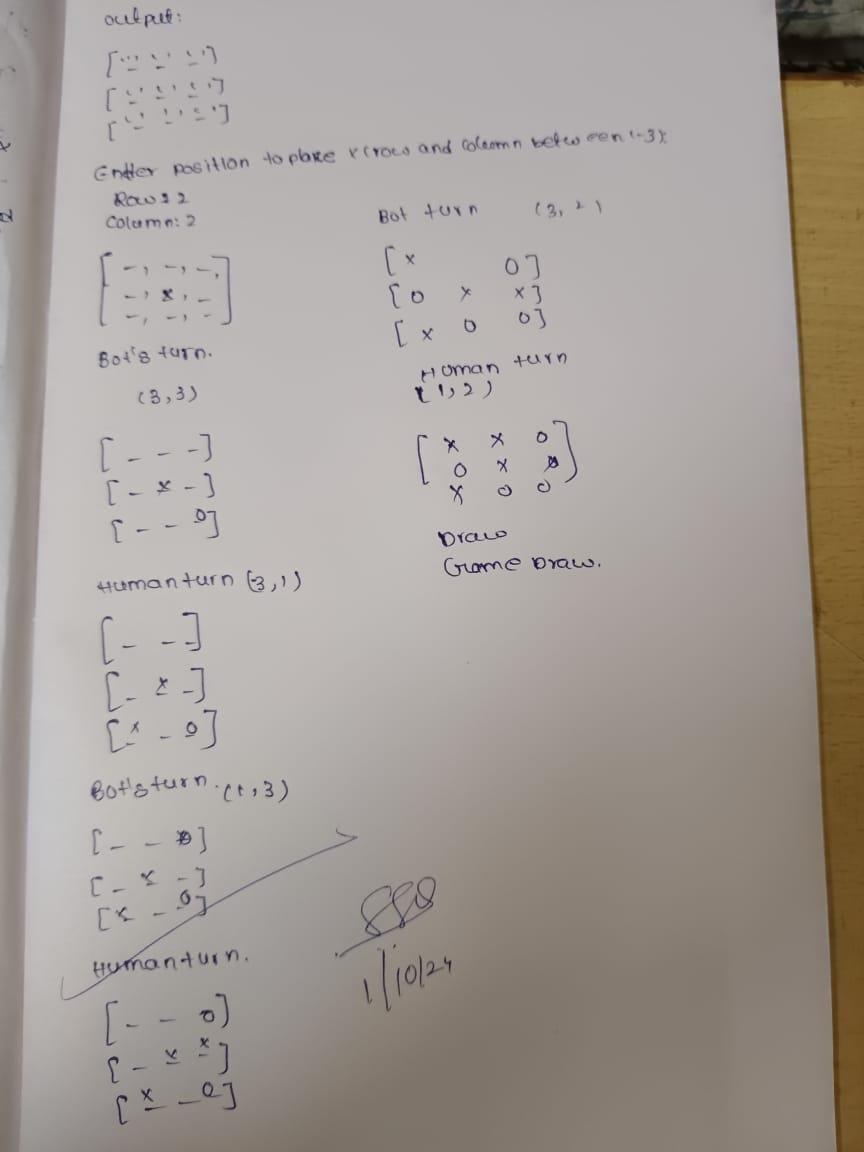 output:
['_' '_' '_']
['_' '_' '_']
['_' '_' '_']
Entter position to plaxe x (row and column between 1-3):
Row: 2
Column: 2
[ _, _, _,
_, x, _
_, _, _ ]
Bot's turn.
(3,3)
[ _ _ _ ]
[ _ x _ ]
[ _ _ 0 ]
Human turn (3,1)
[ _ _ _ ]
[ _ x _ ]
[ x _ 0 ]
Bot's turn. (1,3)
[ _ _ 0 ]
[ _ x _ ]
[ x _ 0 ]
Human turn.
[ _ _ 0 ]
[ _ x x ]
[ x _ 0 ]
Bot turn (3, 2)
[ x 0 ]
[ 0 x x ]
[ x 0 0 ]
Human turn
(1,2)
[ x x 0
0 x
x 0 0 ]
Draw
Game Draw.
1/10/24